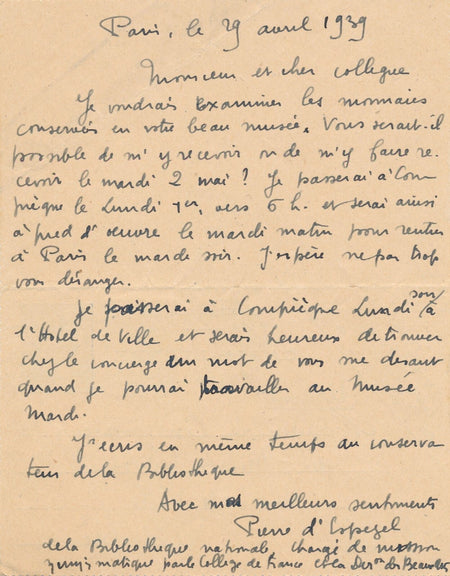 Paris, le 29 avril 1939
Monsieur et cher collegue
Je voudrais examiner les monnaies
conservées en votre beau musée. Vous serait-il
possible de m'y recevoir ou de m'y faire re-
cevoir le mardi 2 mai ? Je passerai à Com
piègne le Lundi 1er, vers 6 h. et serai ainsi
à pied d'oeuvre le mardi matin pour rentrer
à Paris le mardi soir. J'espère ne pas trop
vous déranger.
Je passerai à Compiègne Lundi soir à
l'Hotel de Ville et serais heureux de trouver
chez le concierge un mot de vous me disant
quand je pourrai travailler au Musée
Mardi.
J'écris en même temps au conserva
teur de la Bibliothèque
Avec mes meilleurs sentiments
Pierre d'Espezel
de la Bibliothèque nationale, chargé de mission
numismatique par le Collège de France et la Don des Beaux